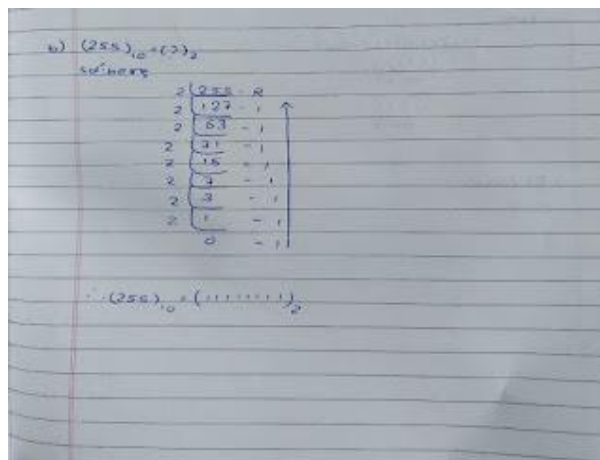 b) (255)₁₀ = (?)₂
solⁿ: here,
2 | 255 - R
2 | 127 - 1
2 | 63 - 1
2 | 31 - 1
2 | 15 - 1
2 | 7 - 1
2 | 3 - 1
2 | 1 - 1
0 - 1
∴ (255)₁₀ = (11111111)₂